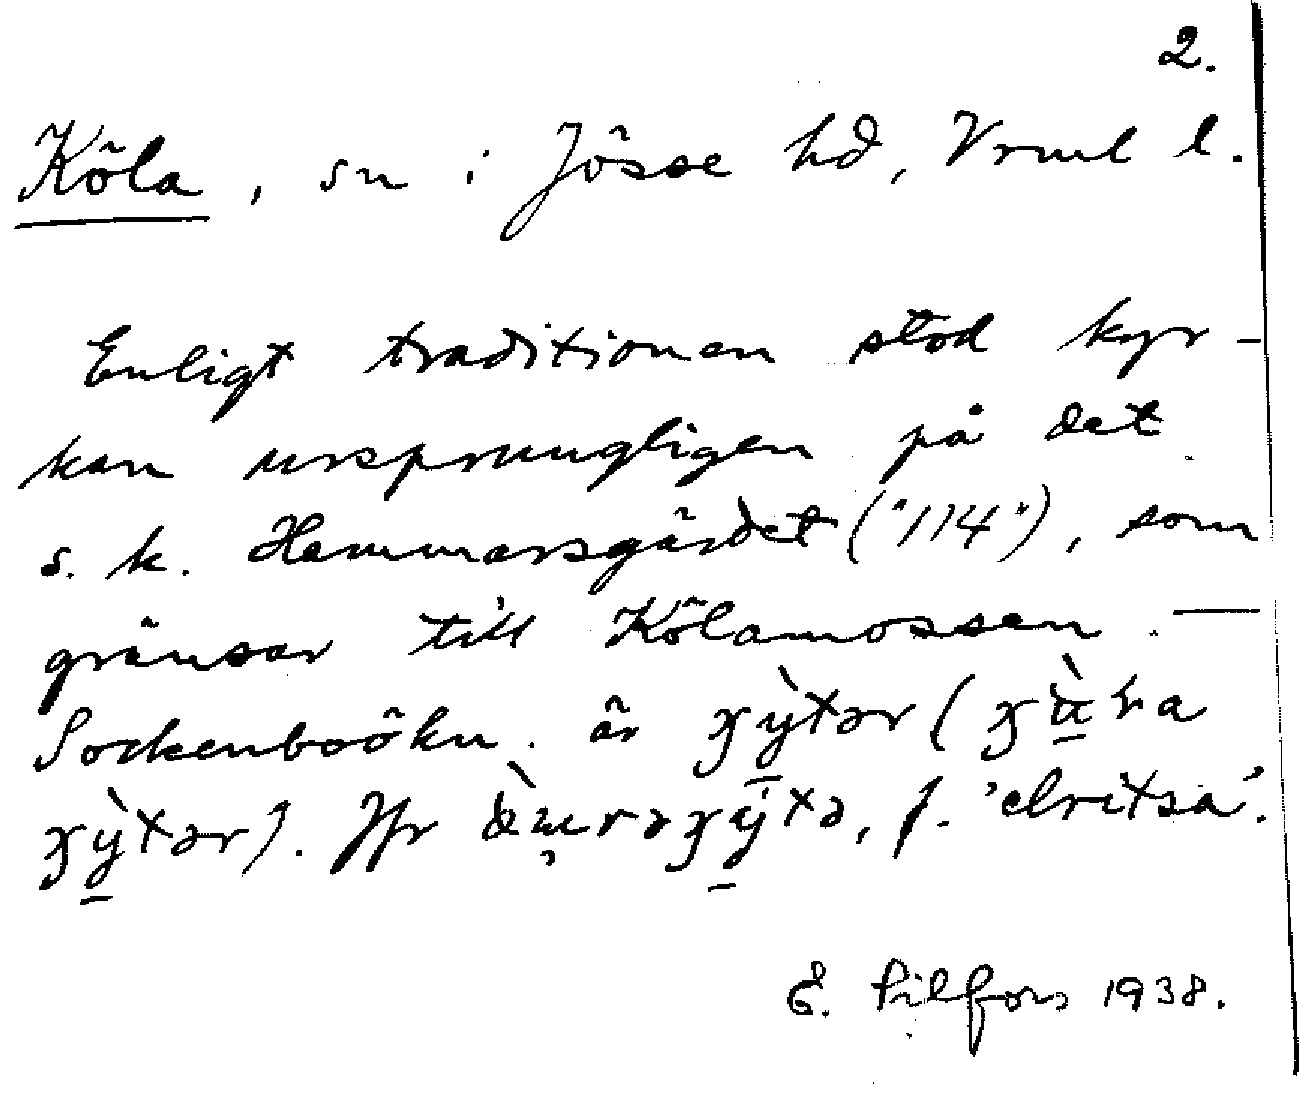 2.
Köla, sn i Jösse hd, Vrml l.
Enligt traditionen stod kyr-
kan ursprungligen på det
s. k. Hammarsgärdet ("114"), som
gränsar till Kölamossen. —
Sockenboökn. är
Jfr f. 'elritsa'.
E. Lilfors 1938.